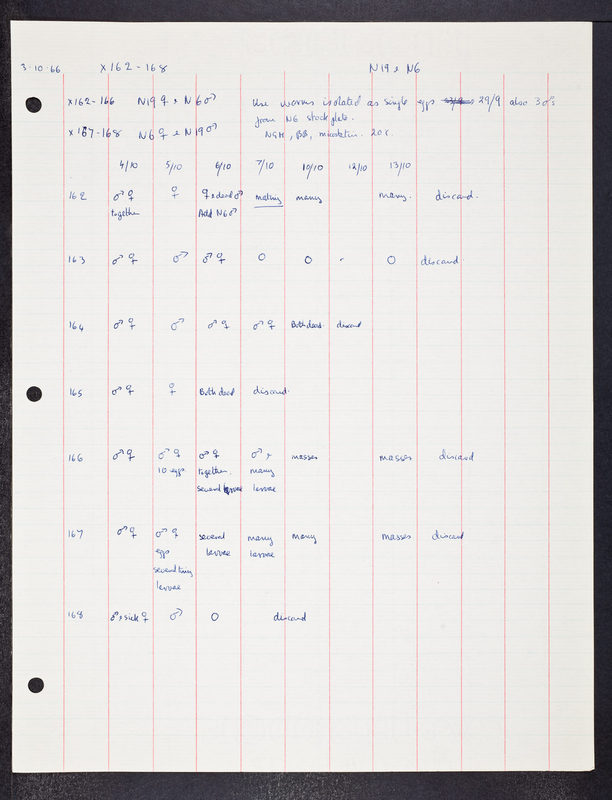 3·10·66 X162-168 N19 x N6
X162-166 N19 ♀ x N6 ♂ Use worms isolated as single eggs 29/9 also 3 ♂s
from N6 stock plate.
X167-168 N6 ♀ x N19 ♂ NGM, BB, mycostatin. 20c.
4/10 5/10 6/10 7/10 10/10 12/10 13/10
162 ♂ ♀ ♀ ♀ x dead ♂ mating many many. discard.
together Add N6 ♂
163 ♂ ♀ ♂ ♂ ♀ O O - O discard
164 ♂ ♀ ♂ ♂ ♀ ♂ ♀ Both dead. discard
165 ♂ ♀ ♀ Both dead discard.
166 ♂ ♀ ♂ ♀ ♂ ♀ ♂ x masses masses discard
10 eggs together. many
several larvae larvae
167 ♂ ♀ ♂ ♀ several many many masses discard
eggs larvae larvae
several tiny
larvae
168 ♂ x sick ♀ ♂ O discard